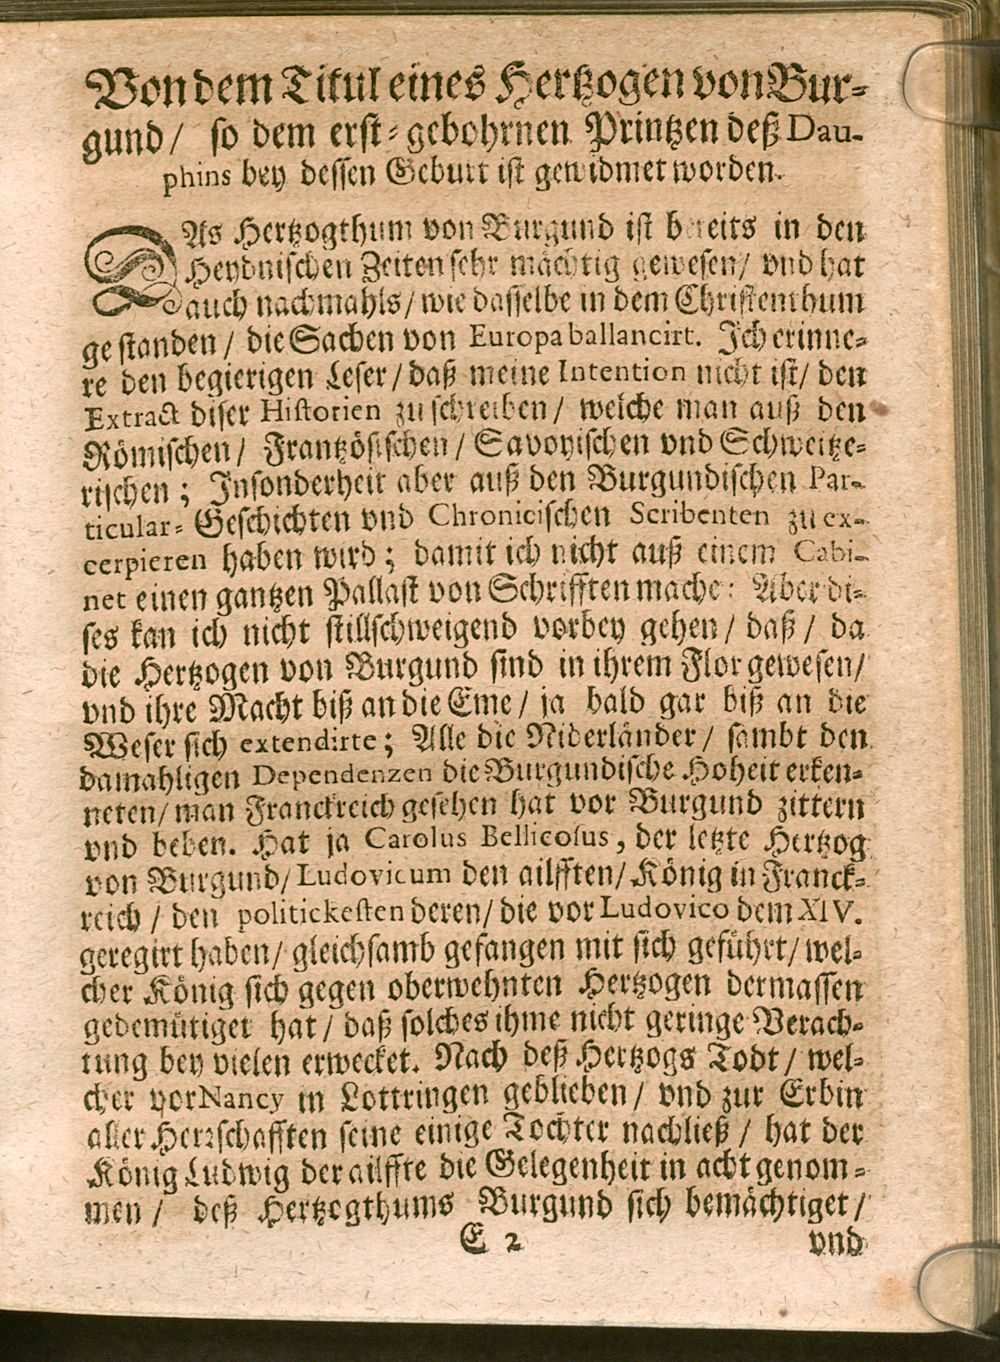 Von dem Titul eines Hertzogen von Bur-
gund / so dem erst-gebohrnen Printzen deß Dau-
phins bey dessen Geburt ist gewidmet worden.
DAs Hertzogthum von Burgund ist bereits in den
Heydnischen Zeiten sehr mächtig gewesen / vnd hat
auch nachmahls / wie dasselbe in dem Christenthum
gestanden / die Sachen von Europa ballancirt. Ich erinne-
re den begierigen Leser / daß meine Intention nicht ist / den
Extract diser Historien zu schreiben / welche man auß den
Römischen / Frantzösischen / Savoyischen vnd Schweitze-
rischen ; Insonderheit aber auß den Burgundischen Par-
ticular-Geschichten vnd Chronicischen Scribenten zu ex-
cerpieren haben wird ; damit ich nicht auß einem Cabi-
net einen gantzen Pallast von Schrifften mache : Aber di-
ses kan ich nicht stillschweigend vorbey gehen / daß / da
die Hertzogen von Burgund sind in ihrem Flor gewesen /
vnd ihre Macht biß an die Eme / ja bald gar biß an die
Weser sich extendirte ; Alle die Niderländer / sambt den
damahligen Dependenzen die Burgundische Hoheit erken-
neten / man Franckreich gesehen hat vor Burgund zittern
vnd beben. Hat ja Carolus Bellicosus, der letzte Hertzog
von Burgund / Ludovicum den ailfften / König in Franck-
reich / den politickesten deren / die vor Ludovico dem XIV.
geregirt haben / gleichsamb gefangen mit sich geführt / wel-
cher König sich gegen oberwehnten Hertzogen dermassen
gedemütiget hat / daß solches ihme nicht geringe Verach-
tung bey vielen erwecket. Nach deß Hertzogs Todt / wel-
cher vor Nancy in Lottringen geblieben / vnd zur Erbin
aller Herrschafften seine einige Tochter nachließ / hat der
König Ludwig der ailffte die Gelegenheit in acht genom-
men / deß Hertzogthums Burgund sich bemächtiget /
E 2 vnd